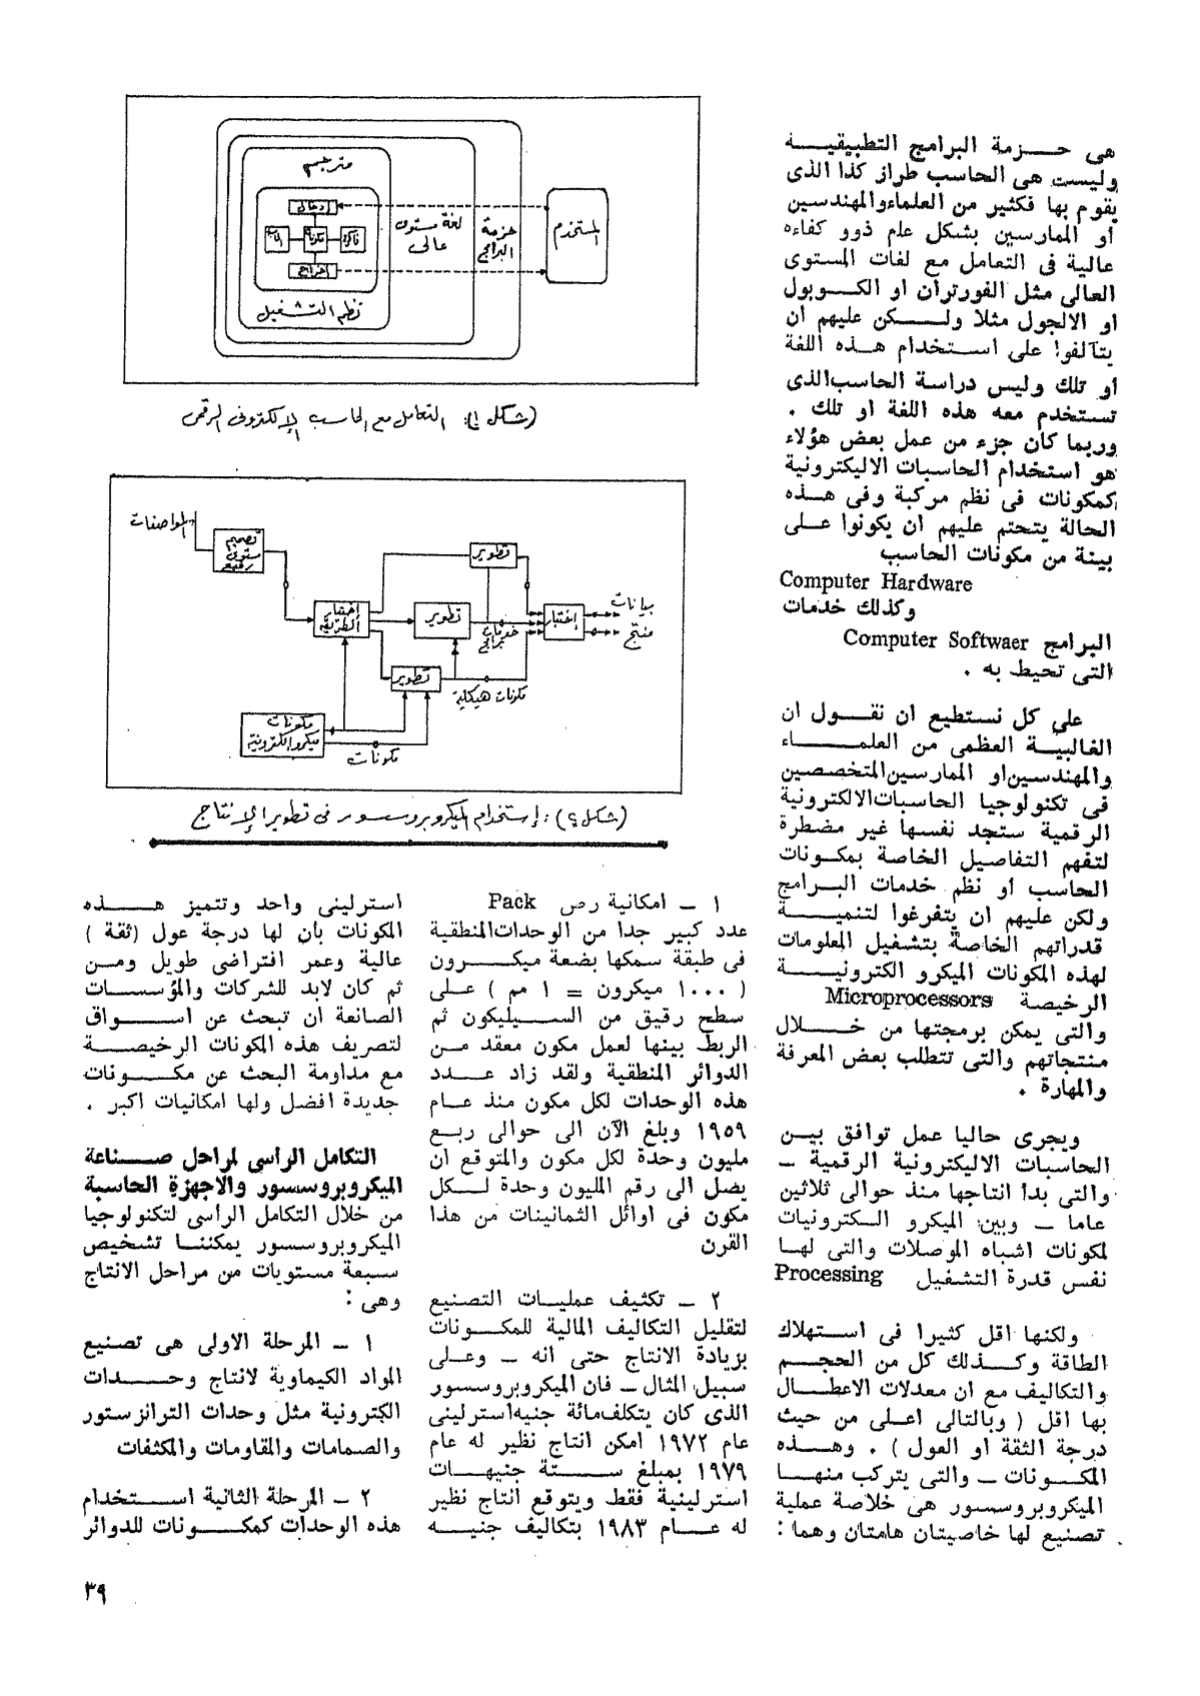 هى حـــزمة البرامج التطبيقيـــة
وليست هى الحاسب طراز كذا الذى
يقوم بها فكثير من العلماءوالمهندسين
او الممارسين بشكل عام ذوو كفاءه
عالية فى التعامل مع لغات المستوى
العالى مثل الفورتران او الكـــوبول
او الالجول مثلا ولـــكن عليهم ان
يتآلفوا على استخدام هـذه اللغة
او تلك وليس دراسة الحاسب الذى
تستخدم معه هذه اللغة او تلك .
وربما كان جزء من عمل بعض هؤلاء
هو استخدام الحاسبات الاليكترونية
كمكونات فى نظم مركبة وفى هـذه
الحالة يتحتم عليهم ان يكونوا عــلى
بينة من مكونات الحاسب
Computer Hardware
وكذلك خدمات
البرامج Computer Softwaer
التى تحيط به .
على كل نستطيع ان نقــول ان
الغالبيــة العظمى من العلمــــاء
والمهندسين او الممارسين المتخصصين
فى تكنولوجيا الحاسبات الالكترونية
الرقمية ستجد نفسها غير مضطرة
لتفهم التفاصيل الخاصة بمكـونات
الحاسب أو نظم خدمات البـرامج
ولكن عليهم ان يتفرغوا لتنميـــة
قدراتهم الخاصة بتشغيل المعلومات
لهذه المكونات الميكرو الكترونيـــة
الرخيصة Microprocessors
والتى يمكن برمجتها من خـــلال
منتجاتهم والتى تتطلب بعض المعرفة
والمهارة .
ويجرى حاليا عمل توافق بيــن
الحاسبات الاليكترونية الرقمية –
والتى بدا انتاجها منذ حوالى ثلاثين
عاما – وبين الميكرو الـكترونيات
لمكونات اشباه الموصلات والتى لهـا
نفس قدرة التشغيل Processing
ولكنها اقل كثيرا فى استهلاك
الطاقة وكـــذلك كل من الحجــم
والتكاليف مع ان معدلات الاعطــال
بها اقل ( وبالتالى اعلى من حيث
درجة الثقة او العول ) . وهــذه
المكــونات – والتى يتركب منهـا
الميكروبروسسور هى خلاصة عملية
تصنيع لها خاصيتان هامتان وهما :
المستخدم
حزمة
البرامج
لغة مستوى
عالى
مترجم
إدخال
ذاكرة
إخراج
نظم التشغيل
(شكل ١): التعامل مع الحاسب الإلكترونى الرقمى
المواصفات
تصميم
مستوى
رفيع
إختيار
الطريقة
تطوير
تطوير
تطوير
إختبار
بيانات
منتج
مكونات هيكلية
مكونات
ميكروالكترونية
مكونات
(شكل ٢): إستخدام الميكروبروسسور فى تطوير الإنتاج
١ – امكانية رص Pack
عدد كبير جدا من الوحدات المنطقية
فى طبقة سمكها بضعة ميكـــرون
( ١٠٠٠ ميكرون = ١ مم ) على
سطح رقيق من الســـيليكون ثم
الربط بينها لعمل مكون معقد مـن
الدوائر المنطقية ولقد زاد عـــدد
هذه الوحدات لكل مكون منذ عـام
١٩٥٩ وبلغ الآن الى حوالى ربـع
مليون وحدة لكل مكون والمتوقع ان
يصل الى رقم المليون وحدة لــكل
مكون فى اوائل الثمانينات من هذا
القرن
٢ – تكثيف عمليــات التصنيع
لتقليل التكاليف المالية للمكـــونات
بزيادة الانتاج حتى انه – وعــلى
سبيل المثال – فان الميكروبروسسور
الذى كان يتكلف مائة جنيه استرلينى
عام ١٩٧٢ امكن انتاج نظير له عام
١٩٧٩ بمبلغ ســـتة جنيهــات
استرلينية فقط ويتوقع انتاج نظير
له عـــام ١٩٨٣ بتكاليف جنيـــه
استرلينى واحد وتتميز هــــذه
المكونات بان لها درجة عول (ثقة )
عالية وعمر افتراضى طويل ومــن
ثم كان لابد للشركات والمؤسســات
الصانعة ان تبحث عن اســــواق
لتصريف هذه المكونات الرخيصـــة
مع مداومة البحث عن مكـــونات
جديدة افضل ولها امكانيات اكبر .
التكامل الراسى لمراحل صــناعة
الميكروبروسسور والاجهزة الحاسبة
من خلال التكامل الراسى لتكنولوجيا
الميكروبروسسور يمكننــا تشخيص
سبعة مستويات من مراحل الانتاج
وهى :
١ – المرحلة الاولى هى تصنيع
المواد الكيماوية لانتاج وحــــدات
الكترونية مثل وحدات الترانزستور
والصمامات والمقاومات والمكثفات
٢ – المرحلة الثانية اســـتخدام
هذه الوحدات كمكـــونات للدوائر
٣٩